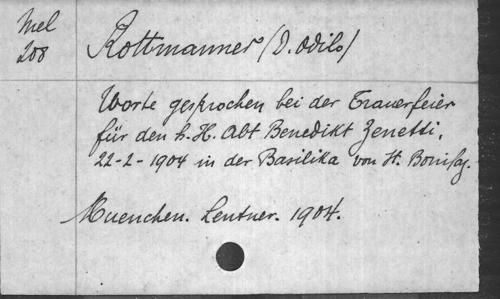 Mel
208
Rottmanner (D. Odilo)
Worte gesprochen bei der Trauerfeier
für den h. H. Abt Benedikt Zenetti,
22-2-1904 in der Basilika von St. Bonifaz.
Muenchen. Lentner. 1904.